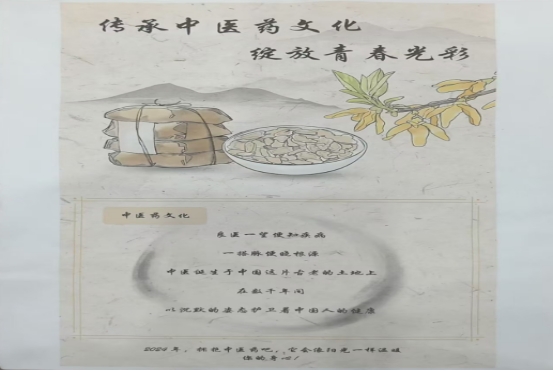 传承中医药文化
绽放青春光彩
中医药文化
良医一望便知疾病
一搭脉便晓根源
中医诞生于中国这片古老的土地上
在数千年间
以沉默的姿态护卫着中国人的健康
2024年，拥抱中医药吧，它会像阳光一样温暖
你的身心！